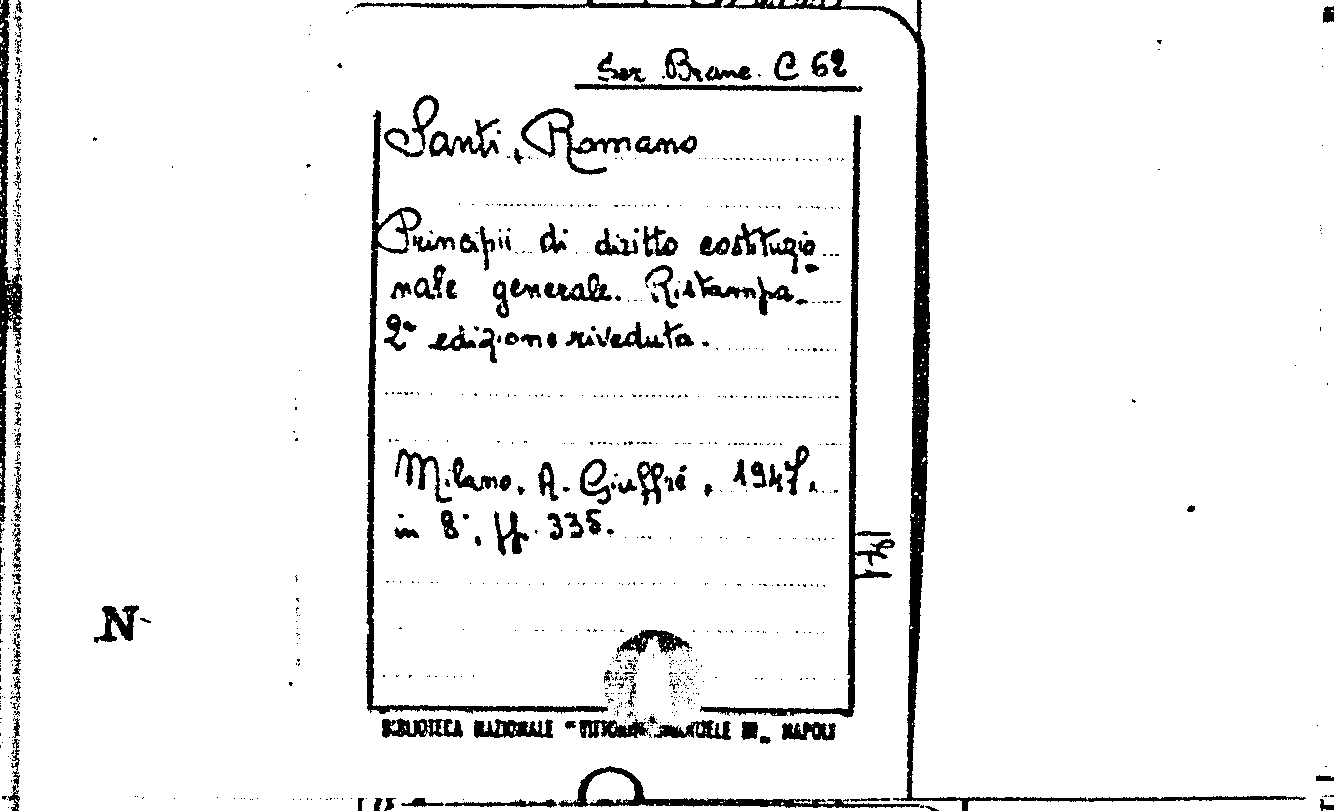 Ser Branc. C 62
Santi, Romano
Principii di diritto costituzio
nale generale. Ristampa
2ª edizione riveduta.
Milano. A. Giuffré, 1947.
in 8°. ff. 335.
N
BIBLIOTECA NAZIONALE "VITTORIO EMANUELE III„ NAPOLI